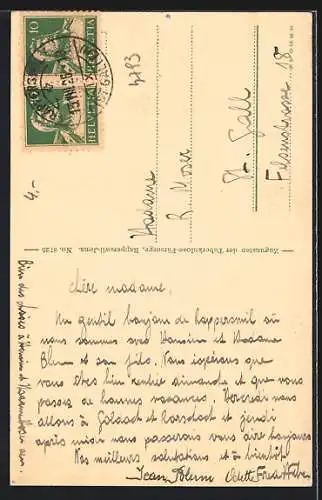 10 10
HELVETIA HELVETIA
4793
Madame
R Moser
St. Gall
Felsenstrasse 18
Zugunsten der Tuberkulose-Fürsorge, Rapperswil-Jona. No. 8725
4,-
Chère madame,
Un gentil bonjour de Rapperswil où
nous sommes avec Monsieur et Madame
Blum et son fils. Nous espérons que
vous êtes bien rentrée dimanche et que vous
passez de bonnes vacances. Vendredi nous
allons à Goldach et Rorschach et jeudi
après midi nous passerons vous dire bonjour
Nos meilleurs salutations et à bientôt
Jean Blum Odette
Bien des choses à Monsieur et